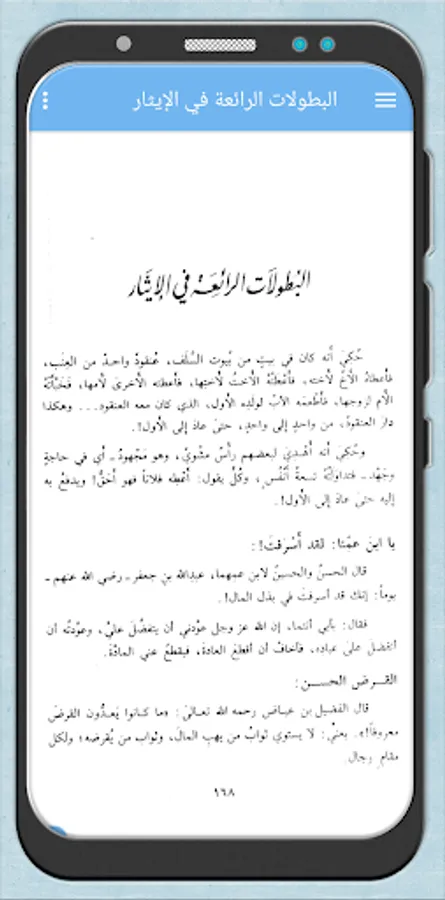 البطولات الرائعة في الإيثار
البُطولَات الرائِعَة في الإيثَار
حُكيَ أنه كان في بيتٍ من بُيوت السَّلَف، عُنقودٌ واحدٌ من العِنَب،
فأعطاهُ الأخُ لأخته. فأعْطَتْهُ الأختُ لأختِها، فأعطته الأخرىٰ لأمها، فَخَبَّأتْهُ
الأم لزوجها، فأطْعَمَه الأبُ لولدِه الأول، الذي كان معه العنقود... وهكذا
دار العنقودُ، من واحدٍ إلى واحدٍ، حتىٰ عادَ إلى الأول!.
وحُكيَ أنه أُهْديَ لبعضهم رأسٌ مشْويٌ، وهو مَجْهودٌ ـ أي في حاجةٍ
وجَهْد ـ فتداوَلَهُ تسعةُ أنْفُسٍ، وكُلٌ يقول: أعْطِه فلاناً فهو أحَقُّ! ويدفعُ به
إليه حتىٰ عادَ إلى الأول!.
يا ابنَ عمِّنا: لقد أسْرَفتَ!:
قال الحسنُ والحسينُ لابن عمهما، عبدالله بنِ جعفر ـ رضي الله عنهم ـ
يوماً: إنك قد أسرفتَ في بذل المال!.
فقال: بأبي أنتما، إن الله عز وجل عوّدني أن يتفضّلَ عليَّ، وعوّدتُه أن
أتفضلَ علىٰ عباده، فأخافُ أن أقطعَ العادةَ، فيقطعُ عني المادَّةَ.
القـرض الحسـن:
قال الفضيل بن عيـاض رحمه الله تعـالىٰ: «ما كـانوا يَعـدُّون القرضَ
معروفاً!». يعني: لا يستوي ثوابُ من يهب المالَ، وثوابُ من يُقرضه؛ ولكل
مقامٍ رجال.
١٦٨